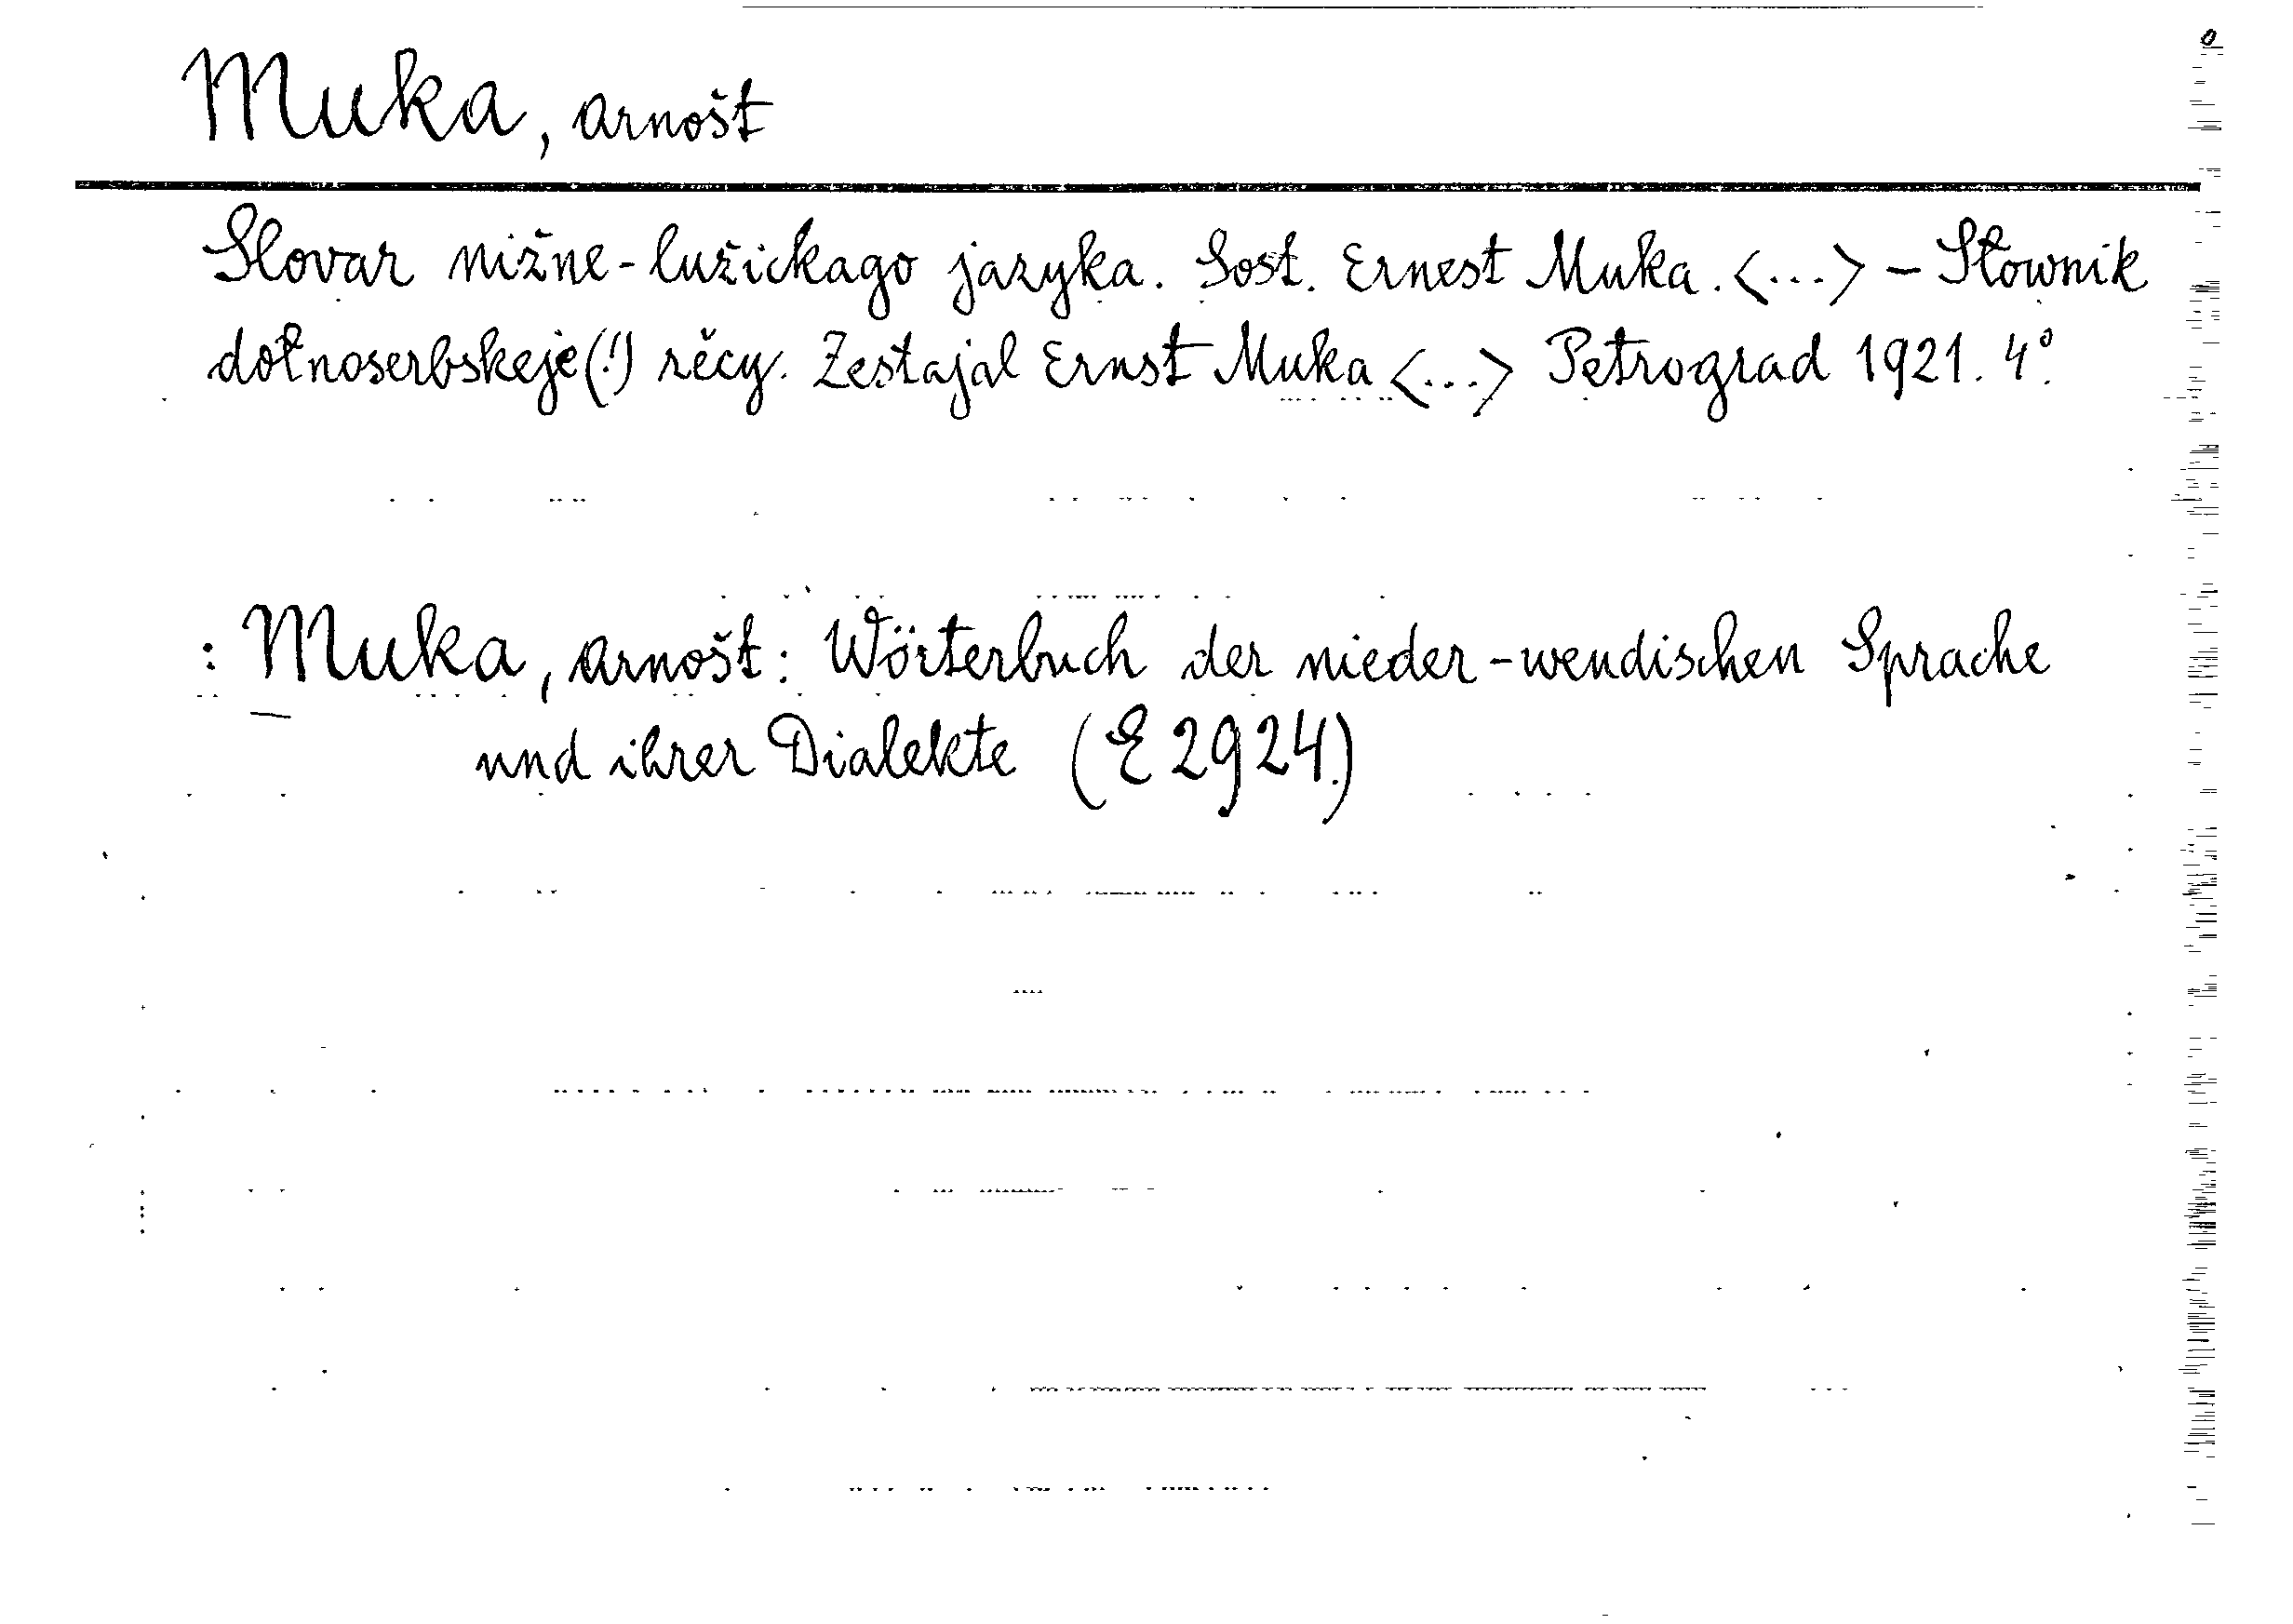 Muka, Arnošt
Slovar nižne-lužickago jazyka. Sost. Ernest Muka. <...> – Słownik
dołnoserbskeje(!) rěcy. Zestajal Ernst Muka <...> Petrograd 1921. 4°.
: Muka, Arnošt: Wörterbuch der nieder-wendischen Sprache
und ihrer Dialekte (E 2924.)